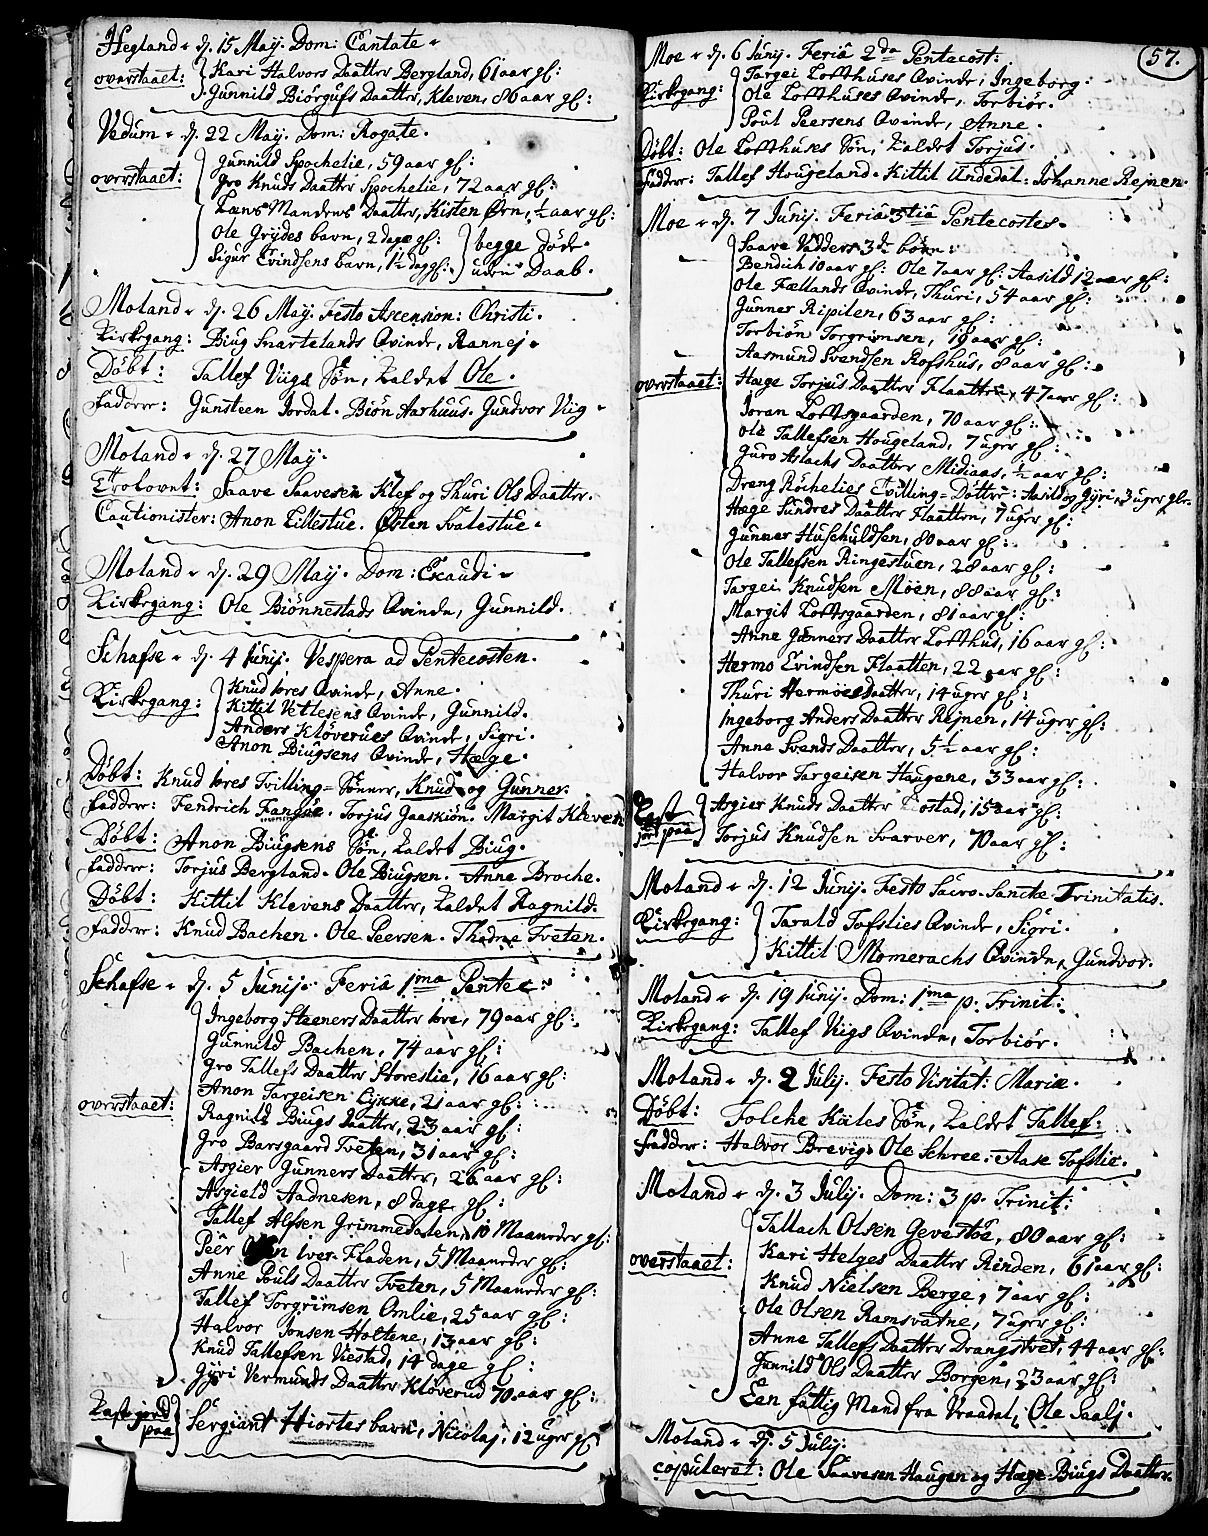 Hegland d. 15 May. Dom: Cantate
overstaaet: Kari Halvors Daatter Bergland, 61 aar gl:
Gunnild Biörgufs Daatter, Kleven, 86 aar gl:
Vedum d. 22 May. Dom: Rogate.
Gunnild Spochelie, 59 aar gl:
overstaaet: Gro Knuds Daatter Spochelie, 72 aar gl:
Lens Mandens Daatter, Kisten Örn, ½ aar gl:
Ole Grydes barn, 2 dage gl: begge döde
Sigur Evindsens barn, 1½ dag gl: uden Daab.
Moland d. 26 May. Festo Ascension: Christi.
Kirkegang: Biug Snartelands Qvinde, Rannej.
Döbt: Tallef Viigs Sön, kaldet Ole.
Faddere: Gunsteen Jordal. Biön Aarhuus. Gundvor Viig
Moland d. 27 May.
Trolovet: Saave Saavesen Klef og Thuri Ols Daatter.
Cautionister: Anon Lillestue. Östen Svalestue.
Moland d. 29 May. Dom: Exaudi
Kirkegang: Ole Biönnestads Qvinde, Gunnild.
Schafse d. 4 Junij. Vespera ad Pentecosten.
Knud Ores Qvinde, Anne.
Kirkegang: Kittil Vetlesens Qvinde, Gunnild.
Anders Klöveruds Qvinde, Sigri.
Anon Biugsens Qvinde, Hæge.
Döbt: Knud Ores Tvilling=Sönner, Knud og Gunner.
Faddere: Fendrich Fangöe. Torjus Gaaskiön. Margit Kleven
Döbt: Anon Biugsens Sön, kaldet Biug.
Faddere: Torjus Bergland. Ole Biugsen. Anne Broche.
Döbt: Kittil Klevens Daatter, kaldet Ragnild.
Faddere: Knud Bachen. Ole Peersen. Thadne Tveten.
Schafse d. 5 Junij. Feriâ 1ma Pentec:
Ingeborg Steeners Daatter Ore, 79 aar gl:
Gunnild Bachen, 74 aar gl:
Gro Tallefs Daatter Storeslie, 16 aar gl:
Anon Targeisen Lykke, 21 aar gl:
overstaaet: Ragnild Biugs Daatter, 23 aar gl:
Gro Barsgaard Tveten, 31 aar gl:
Asgier Gunners Daatter, 26 aar gl:
Asgield Aadnesen, 8 dage gl:
Tallef Alfsen Grimmedalen, 10 Maaneder gl:
Peer Iver Fladen, 5 Maaneder gl:
Anne Pouls Daatter Tveten, 5 Maaneder gl:
Tallef Torgrimsen Omlie, 25 aar gl:
Halvor Jonsen Holtene, 13 aar gl:
Knud Tallefsen Viestad, 14 dage gl:
Gyri Vermunds Daatter Klöverud 70 aar gl:
Kast jord paa Sergiant Hiortes barn, Nicolaj, 12 uger gl
57.
Moe d. 6 Junij. Feriâ 2da Pentecost:
Targei Lofthuses Qvinde, Ingeborg.
Kirkegang: Ole Lofthuses Qvinde, Torbiör.
Poul Peersens Qvinde, Anne.
Döbt: Ole Lofthuses Sön, kaldet Torjus.
Faddere: Tallef Hougeland. Kittil Undedal. Johanne Rejnen.
Moe d. 7 Junij. Feriâ 3tiâ Pentecostes.
Saave Vadders 3de börn:
Bendich 10 aar gl: Ole 7 aar gl: Aasild 12 aar gl:
Ole Fællands Qvinde, Thuri, 54 aar gl:
Gunner Ripilen, 63 aar gl:
Torbiön Torgrimsen, 19 aar gl:
Aasmund Svendsen Rofshus, 8 aar gl:
overstaaet: Hæge Torjus Daatter Flaatten, 47 aar gl:
Joran Loftsgaarden, 70 aar gl:
Ole Tallefsen Hougeland, 7 uger gl:
Guro Aslachs Daatter Midiaas, ½ aar gl:
Dreng Röchelies Tvilling=Döttre: Aasild og Gyri, 3 uger gle.
Hæge Sundres Daatter Flaatten, 7 uger gl:
Gunner Huschuldsen, 80 aar gl:
Ole Tallefsen Ringestuen, 28 aar gl:
Targei Knudsen Möen, 88 aar gl:
Margit Loftsgaarden, 81 aar gl:
Anne Gunners Daatter Lofthus, 16 aar gl:
Hermo Evindsen Flaatten, 22 aar gl:
Thuri Hermoes Daatter, 14 uger gl:
Ingeborg Anders Daatter Rejnen, 14 uger gl:
Anne Svends Daatter, 5½ aar gl:
Halvor Targeisen Haugene, 33 aar gl:
Kast jord paa Asgier Knuds Daatter 15 aar gl:
Torjus Knudsen Svarver, 70 aar gl:
Moland d. 12 Junij. Festo Sacro-Sanctæ Trinitatis.
Kirkegang: Tarald Tofslies Qvinde, Sigri.
Kittil Momerachs Qvinde, Gundvor.
Moland d. 19 Junij. Dom: 1ma p. Trinit:
Kirkegang: Tallef Viigs Qvinde, Torbiör.
Moland d. 2 Julij. Festo Visitat: Mariæ.
Döbt: Folche Kiiles Sön, kaldet Tallef:
Faddere: Halvor Brevig. Ole Schree. Aase Tofslie.
Moland d. 3 Julij. Dom: 3 p. Trinit:
Tallach Olsen Gevestöe, 80 aar gl:
overstaaet: Kari Helges Daatter Rinden, 61 aar gl:
Knud Nielsen Berge, 7 aar gl:
Ole Olsen Ramsvatne, 7 uger gl:
Anne Tallefs Daatter Drangstvet, 44 aar gl:
Gunnild Ols Daatter Borgen, 23 aar gl:
Een fattig Mand fra Vraadal, Ole Saalj.
Moland d. 5 Julij.
copuleret: Ole Saavesen Haugen og Hæge Biugs Daatter.